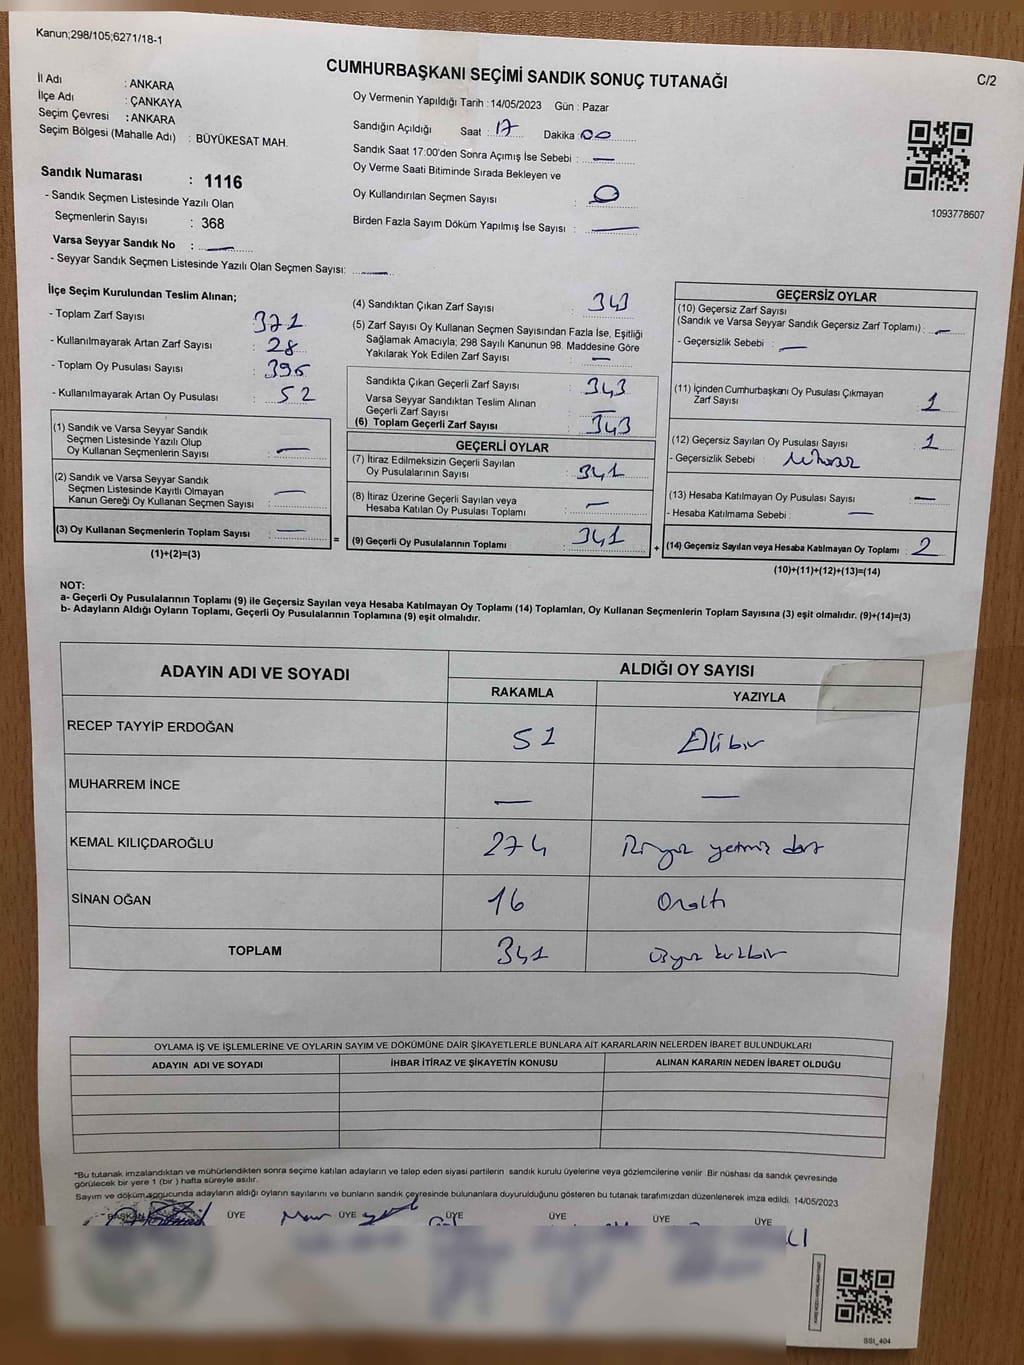 Kanun;298/105;6271/18-1
CUMHURBAŞKANI SEÇİMİ SANDIK SONUÇ TUTANAĞI
C/2
İl Adı : ANKARA
İlçe Adı : ÇANKAYA
Seçim Çevresi : ANKARA
Seçim Bölgesi (Mahalle Adı) : BÜYÜKESAT MAH.
Sandık Numarası : 1116
- Sandık Seçmen Listesinde Yazılı Olan
Seçmenlerin Sayısı : 368
Varsa Seyyar Sandık No : —
- Seyyar Sandık Seçmen Listesinde Yazılı Olan Seçmen Sayısı: —
Oy Vermenin Yapıldığı Tarih : 14/05/2023 Gün : Pazar
Sandığın Açıldığı Saat : 17 Dakika : 00
Sandık Saat 17:00'den Sonra Açımış İse Sebebi : —
Oy Verme Saati Bitiminde Sırada Bekleyen ve
Oy Kullandırılan Seçmen Sayısı : 0
Birden Fazla Sayım Döküm Yapılmış İse Sayısı : —
1093778607
İlçe Seçim Kurulundan Teslim Alınan;
- Toplam Zarf Sayısı : 371
- Kullanılmayarak Artan Zarf Sayısı : 28
- Toplam Oy Pusulası Sayısı : 395
- Kullanılmayarak Artan Oy Pusulası : 52
(1) Sandık ve Varsa Seyyar Sandık
Seçmen Listesinde Yazılı Olup
Oy Kullanan Seçmenlerin Sayısı : —
(2) Sandık ve Varsa Seyyar Sandık
Seçmen Listesinde Kayıtlı Olmayan
Kanun Gereği Oy Kullanan Seçmen Sayısı : —
(3) Oy Kullanan Seçmenlerin Toplam Sayısı : —
(1)+(2)=(3)
=
(4) Sandıktan Çıkan Zarf Sayısı : 343
(5) Zarf Sayısı Oy Kullanan Seçmen Sayısından Fazla İse, Eşitliği
Sağlamak Amacıyla; 298 Sayılı Kanunun 98. Maddesine Göre
Yakılarak Yok Edilen Zarf Sayısı : —
Sandıkta Çıkan Geçerli Zarf Sayısı : 343
Varsa Seyyar Sandıktan Teslim Alınan
Geçerli Zarf Sayısı : —
(6) Toplam Geçerli Zarf Sayısı : 343
GEÇERLİ OYLAR
(7) İtiraz Edilmeksizin Geçerli Sayılan
Oy Pusulalarının Sayısı : 341
(8) İtiraz Üzerine Geçerli Sayılan veya
Hesaba Katılan Oy Pusulası Toplamı : —
(9) Geçerli Oy Pusulalarının Toplamı : 341
+
GEÇERSİZ OYLAR
(10) Geçersiz Zarf Sayısı
(Sandık ve Varsa Seyyar Sandık Geçersiz Zarf Toplamı) : —
- Geçersizlik Sebebi : —
(11) İçinden Cumhurbaşkanı Oy Pusulası Çıkmayan
Zarf Sayısı : 1
(12) Geçersiz Sayılan Oy Pusulası Sayısı : 1
- Geçersizlik Sebebi :
(13) Hesaba Katılmayan Oy Pusulası Sayısı : —
- Hesaba Katılmama Sebebi : —
(14) Geçersiz Sayılan veya Hesaba Katılmayan Oy Toplamı : 2
(10)+(11)+(12)+(13)=(14)
NOT:
a- Geçerli Oy Pusulalarının Toplamı (9) ile Geçersiz Sayılan veya Hesaba Katılmayan Oy Toplamı (14) Toplamları, Oy Kullanan Seçmenlerin Toplam Sayısına (3) eşit olmalıdır. (9)+(14)=(3)
b- Adayların Aldığı Oyların Toplamı, Geçerli Oy Pusulalarının Toplamına (9) eşit olmalıdır.
ADAYIN ADI VE SOYADI ALDIĞI OY SAYISI
RAKAMLA YAZIYLA
RECEP TAYYİP ERDOĞAN 51 Ellibir
MUHARREM İNCE — —
KEMAL KILIÇDAROĞLU 274 İkiyüz yetmiş dört
SİNAN OĞAN 16 Onaltı
TOPLAM 341 Üçyüz kırkbir
OYLAMA İŞ VE İŞLEMLERİNE VE OYLARIN SAYIM VE DÖKÜMÜNE DAİR ŞİKAYETLERLE BUNLARA AİT KARARLARIN NELERDEN İBARET BULUNDUKLARI
ADAYIN ADI VE SOYADI İHBAR İTİRAZ VE ŞİKAYETİN KONUSU ALINAN KARARIN NEDEN İBARET OLDUĞU
*Bu tutanak imzalandıktan ve mühürlendikten sonra seçime katılan adayların ve talep eden siyasi partilerin sandık kurulu üyelerine veya gözlemcilerine verilir Bir nüshası da sandık çevresinde
görülecek bir yere 1 (bir ) hafta süreyle asılır.
Sayım ve döküm sonucunda adayların aldığı oyların sayılarını ve bunların sandık çevresinde bulunanlara duyurulduğunu gösteren bu tutanak tarafımızdan düzenlenerek imza edildi. 14/05/2023
BAŞKAN ÜYE ÜYE ÜYE ÜYE ÜYE ÜYE
SSI_404